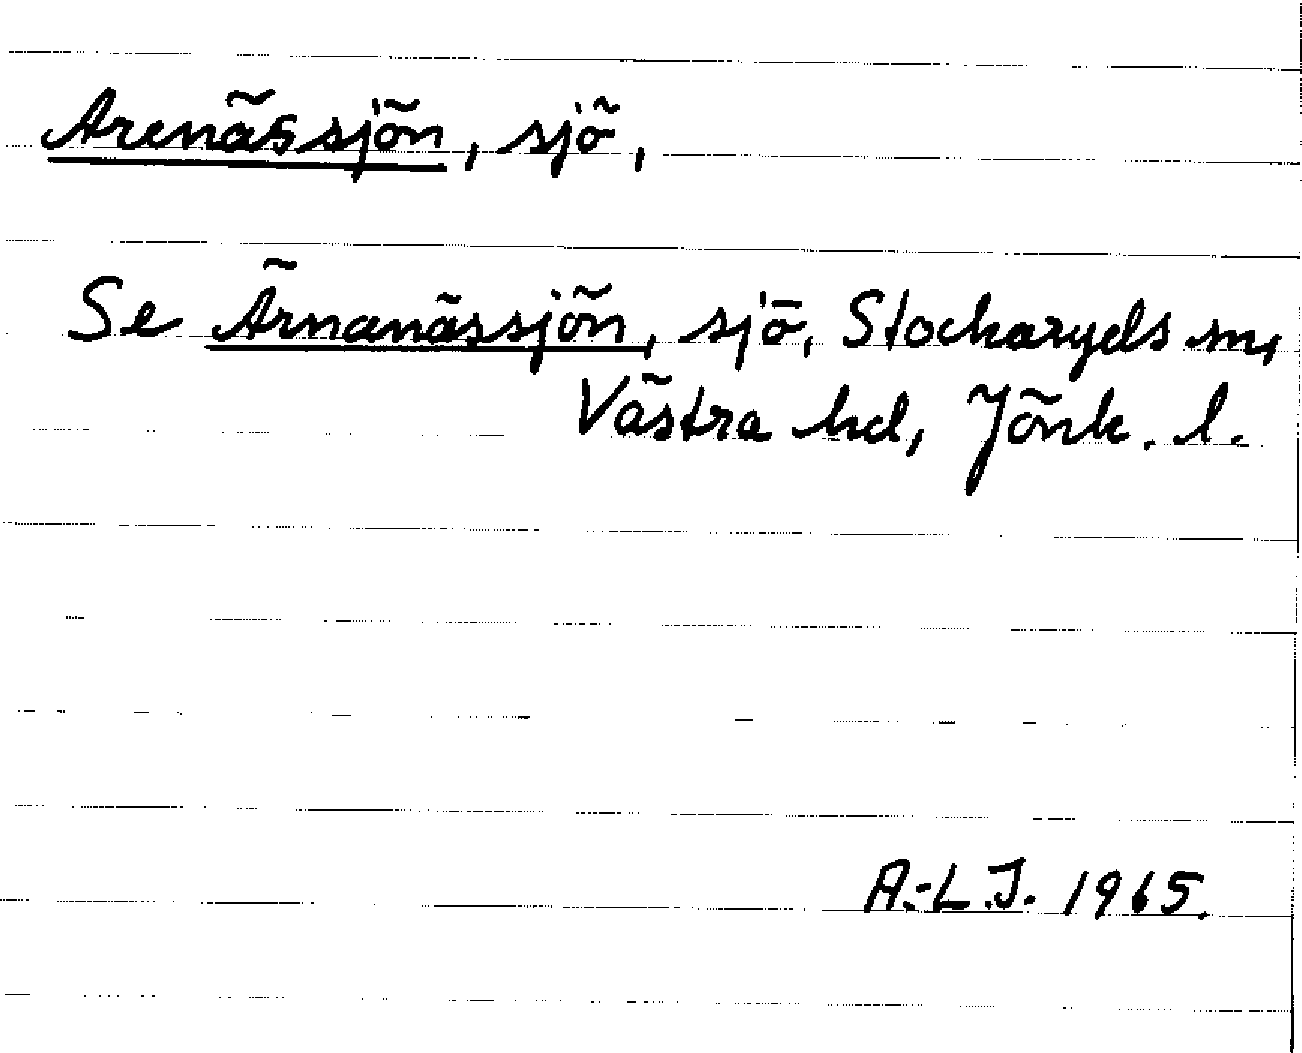 Arenässjön, sjö,
Se Ärnanässjön, sjö, Stockaryds sn,
Västra hd, Jönk. l.
A.-L.J. 1965.